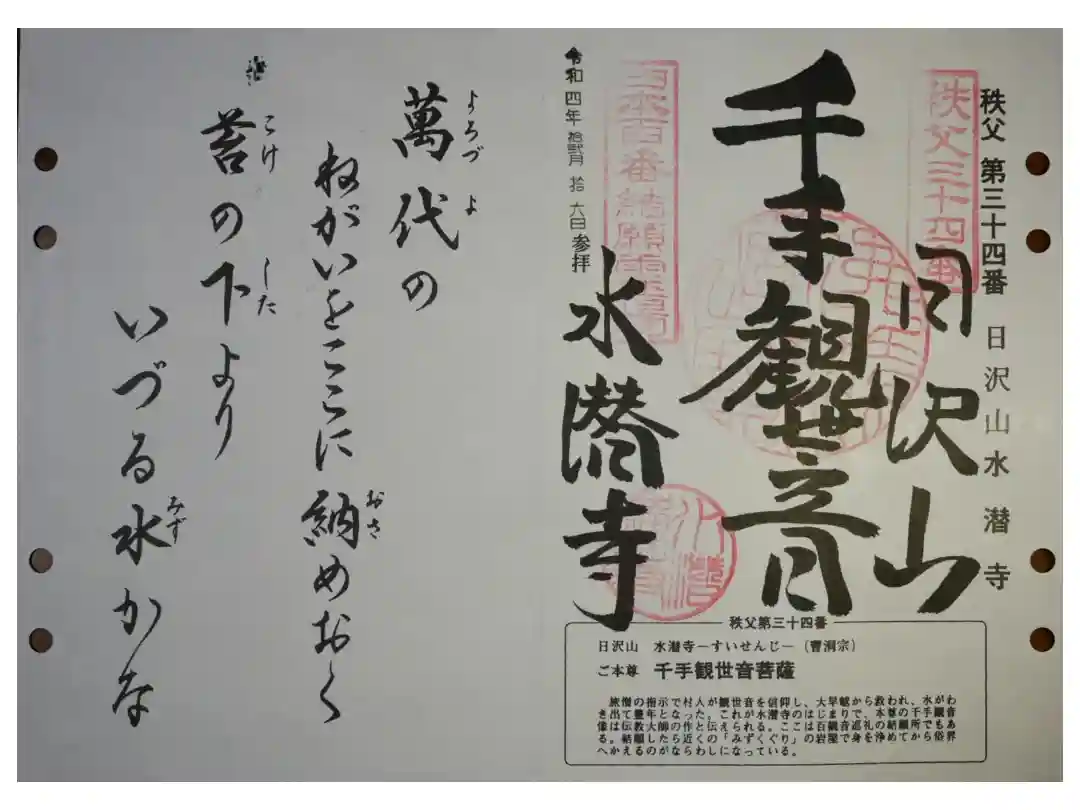 秩父 第三十四番 日沢山水潜寺
秩父三十四番
日沢山
千手観世音
日本百番結願
水潜寺
令和四年 拾弐月 拾六日参拝
秩父第三十四番
日沢山 水潜寺−すいせんじ−(曹洞宗)
ご本尊 千手観世音菩薩
旅僧の指示で村人が観世音を信仰し、大旱魃から救われ、水がわ
き出て豊年となった。これが水潜寺のはじまりで、本尊の千手観音
像は伝教大師の作と伝えられる。ここは百観音巡礼の結願所でもあ
る。結願したら近くの「みずくぐり」の岩屋で身を浄めてから俗界
へかえるのがならわしになっている。
萬代の
よろづ よ
ねがいをここに納めおく
おさ
苔の下より
こけ した
いづる水かな
みず